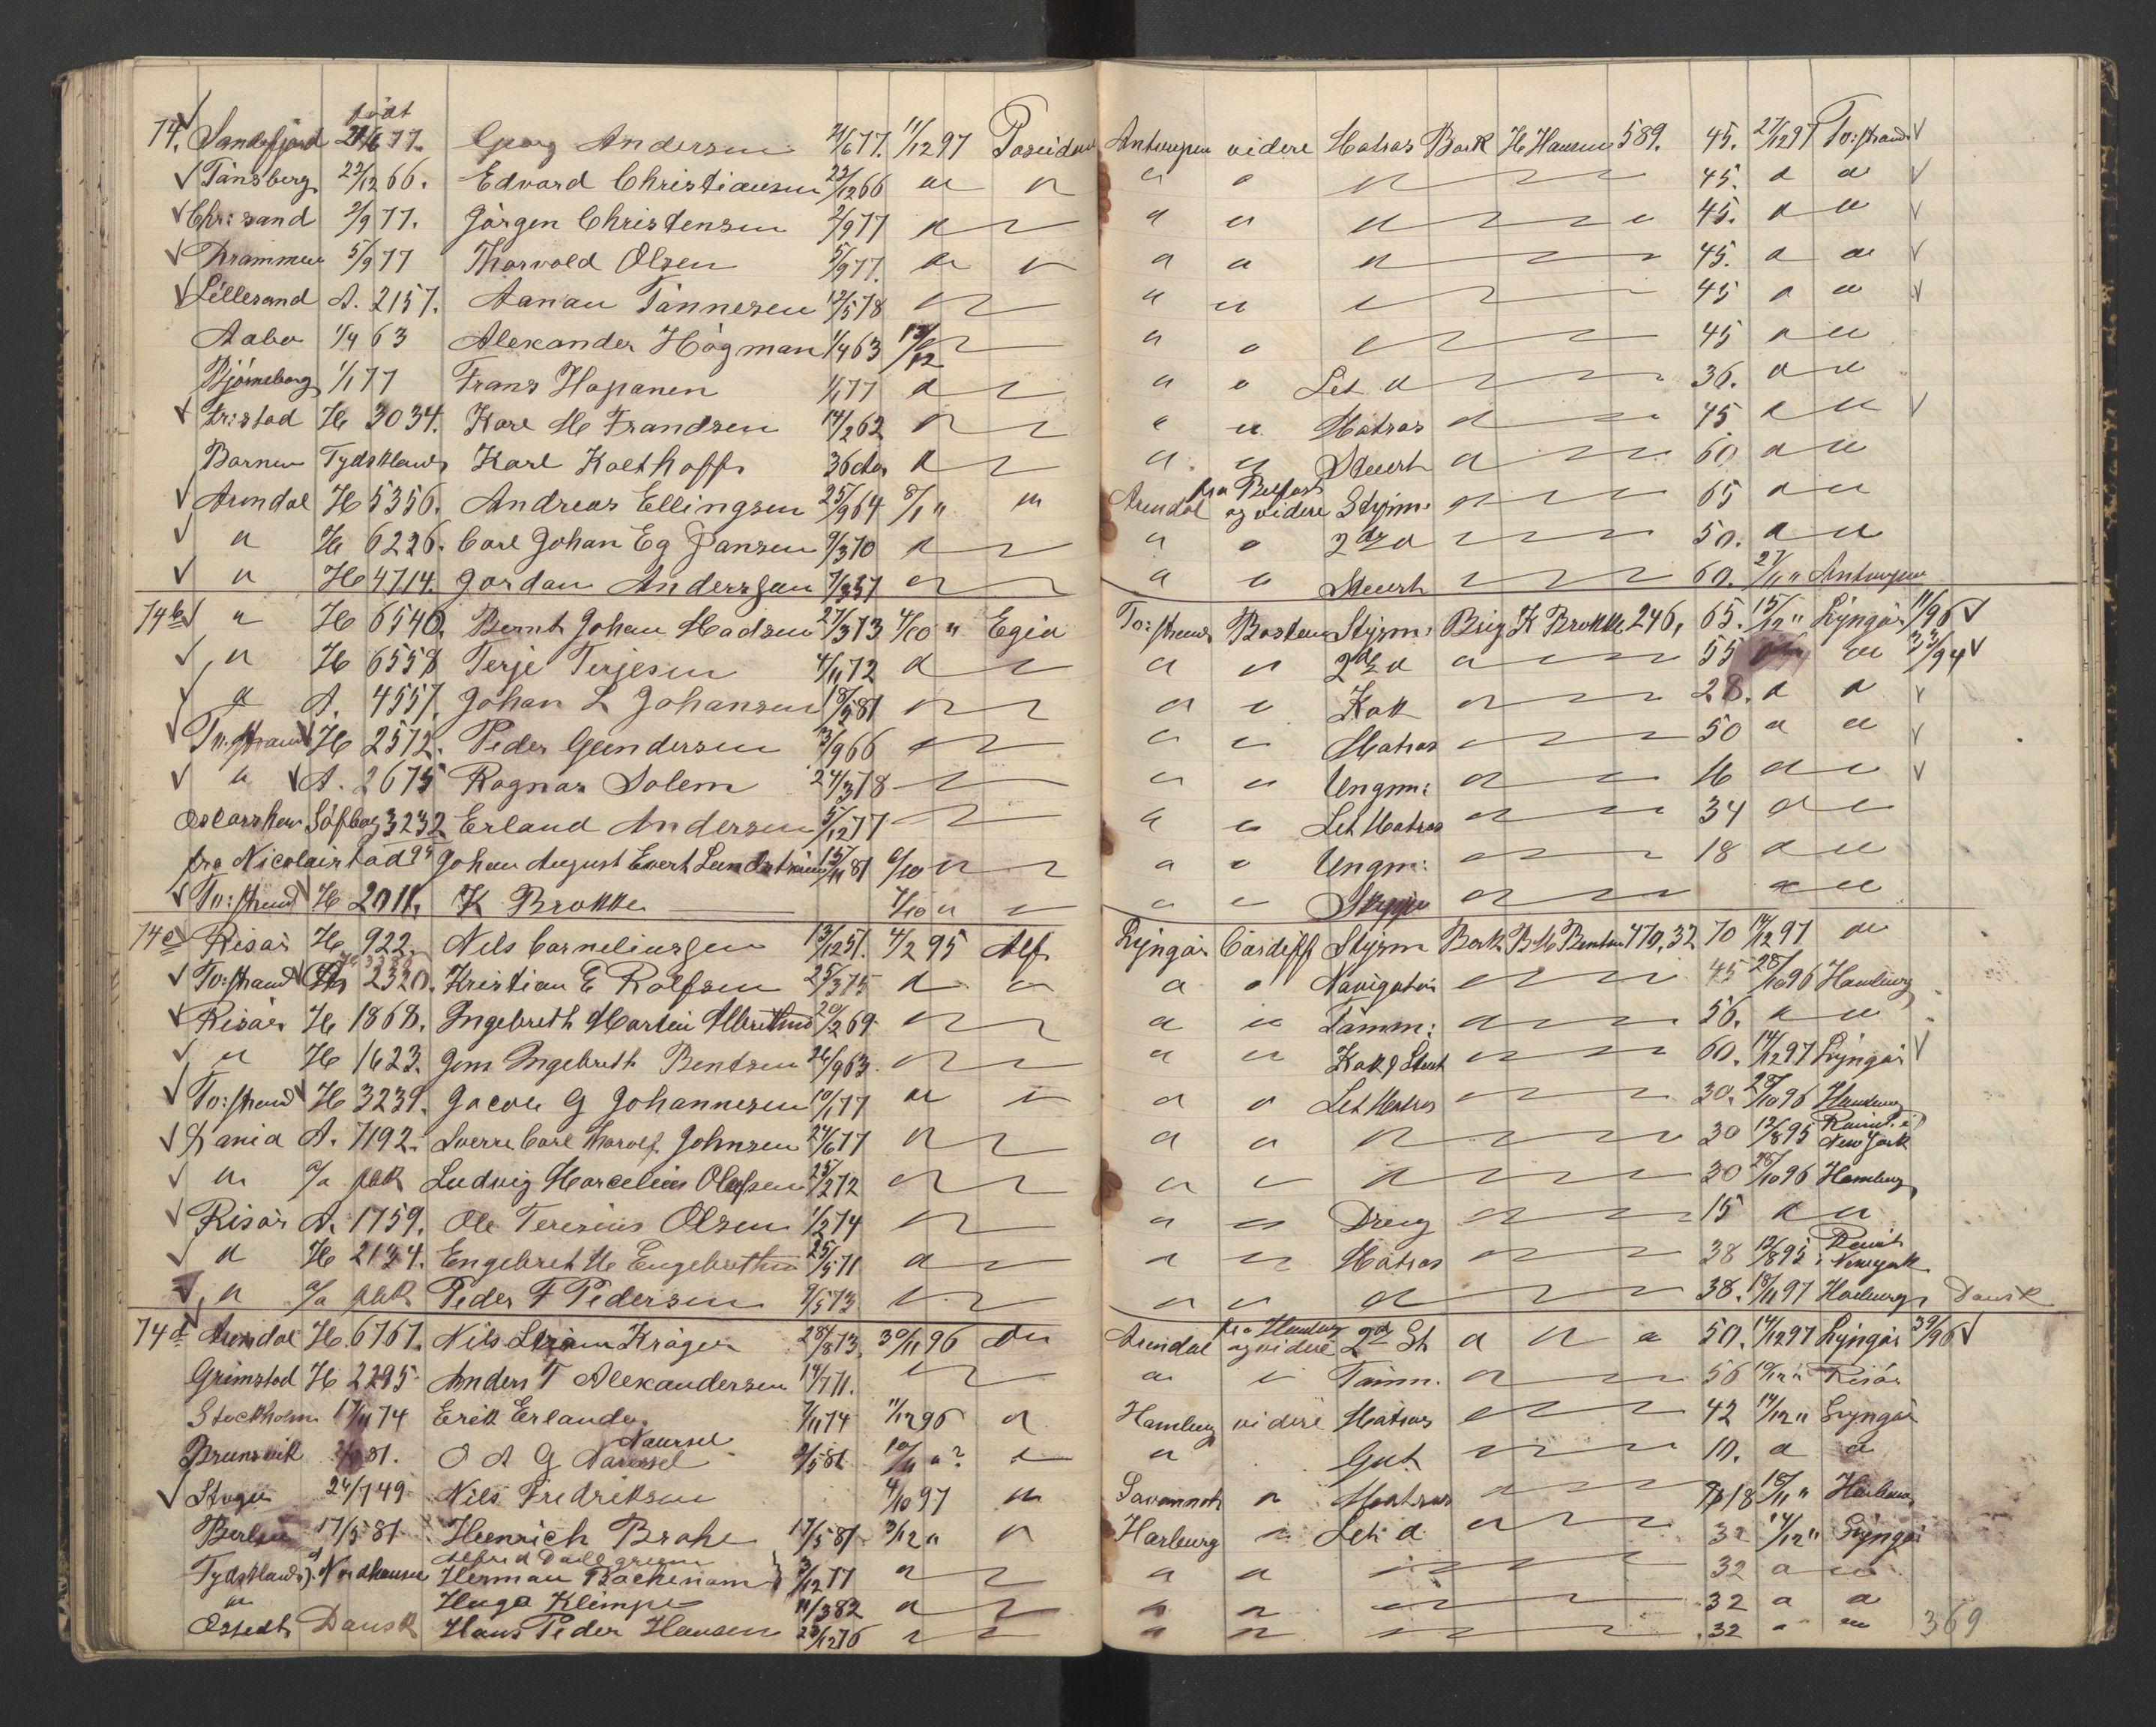 født
74. Sandefjord 21/6 77. Georg Andersen 21/6 77. 11/12 97 Poseidon Antwerpen videre Matros Bark H Hansen 589. 45. 27/12 97 To:strand
Tönsberg 22/12 66. Edvard Christiansen 22/12 66 " " " " " 45. " "
Chr:sand 2/9 77. Jörgen Christensen 2/9 77 " " " " 45. " "
Drammen 5/9 77 Thorvald Olsen 5/9 77. " " " " " 45. " "
Lillesand A. 2157. Aanau Tönnesen 12/5 78 " " " " 45 " "
Aabo 1/4 63 Alexander Högman 1/4 63 13/12 " " " 45 " "
Björneborg 1/1 77 Frans Hapanen 1/1 77 " " " Let " 36. " "
Fr:stad H 3034. Karl M Frandsen 14/2 62 " " " Matros " 45 " "
Barmen Tydskland Karl Kolthoff 36 år " " " Stuert " 60 " "
Arendal H 5356. Andreas Ellingsen 25/9 64 8/1 " " Arendal fra Belfast og videre Styrm: " 65 " "
" H 6226. Carl Johan Eg Jansen 9/3 70 " " " 2den " 50. " "
" H 4714. Jordan Anderssen " " " Stuert 60. 27/11 " Antwerpen
74b " H 6540. Bernt Johan Madsen 27/3 73 4/10 " Egia To:strand Boston Styrm: Brig K Brokke 246, 65. 15/12 " Lyngör 11/96
" H 6558 Terje Terjesen 4/11 72 " " " " 2den " " 55 " /94
" A. 4557. Johan L Johansen 18/5 81 " " " Kok " 28. " "
To:strand H 2572. Peder Gundersen 13/9 66 " " " Matros 50 " "
" A. 2675 Ragnar Solem 24/3 78 " " " Ungm: " 16 " "
Oscarshavn Söfbog 3232 Erland Andersen 5/12 77 " " " Let Matros " 34 " "
fra Nicolaistad 95 Johan August Evert Lundström 15/11 81 6/10 " " " Ungm: 18 " "
To:strand H 2011. K Brokke 7/10 " " " " Skipper " " "
74c Risör H 922. Nils Corneliussen 13/12 51. 4/2 95 Alf Lyngör Cardiff Styrm Bark B M Bentsen 470,32 70 14/12 97 "
To:strand 2320. Kristian E Rolfsen 25/3 75 " " " " Navigatör " 45 28/10 96 Hamburg
Risör H 1868. Ingebreth Martin Albretsen 20/2 69 " " " Tömm: " 56. " "
" H 1623. Jens Ingebreth Bentsen 26/9 63. " " " Kok & Stuert " 60. 14/12 97 Lyngör
To:strand H 3239. Jacob G Johannesen 10/1 77 " " " " Let Matros " 30. 28/10 96 Hamburg
Dania A. 7192. Sverre Carl Thorolf Johnsen 24/6 77 " " " " 30 12/8 95 Römt i New York
" pas Ludvig Marcelius Olafsen 25/2 72 " " " " 30 28/10 96 Hamburg
Risör A. 1759. Ole Teresius Olsen 1/2 74 " " " Dreng " 15 " "
" H 2134. Engebret M Engebrethsen 25/5 71 " " " Matros " 38 12/8 95 Römt i Newyork
" pas Peder F Pedersen 9/5 73. " " " " 38. 18/11 97 Harburg Dansk
74d Arendal H. 6767. Nils Kröger 28/8 73, 30/11 96 " Arendal fra Hamburg og videre 2den St " " " 50. 14/12 97 Lyngör 39/96
Grimstad H 2295 Anders T Alexandersen 14/7 71. " " " Tömm. " 56 19/12 " Risör
Stockholm 17/11 74 Erik Erlander 7/11 74 11/12 96 " Hamburg videre Matros " 42 14/12 " Lyngör
Naursel
Brunsvik 81. O A G 2/5 81 10/11 " ? " " Gut 10. " "
24/7 49 Nils Fredriksen 4/10 97 " Savannah " Matros 18 18/11 " Harburg
Berlin 17/5 81 Heinrich Brohe 17/5 81 3/12 " " Harburg " Let " 32 14/12 " Lyngör
Tydskland Nordhausen Herman 3/12 77 " " " 32 " "
" Hugo Klimpe 11/3 82 " " " 32 " "
Dansk Hans Peder Hansen 23/12 76 " " " 32 " "
369